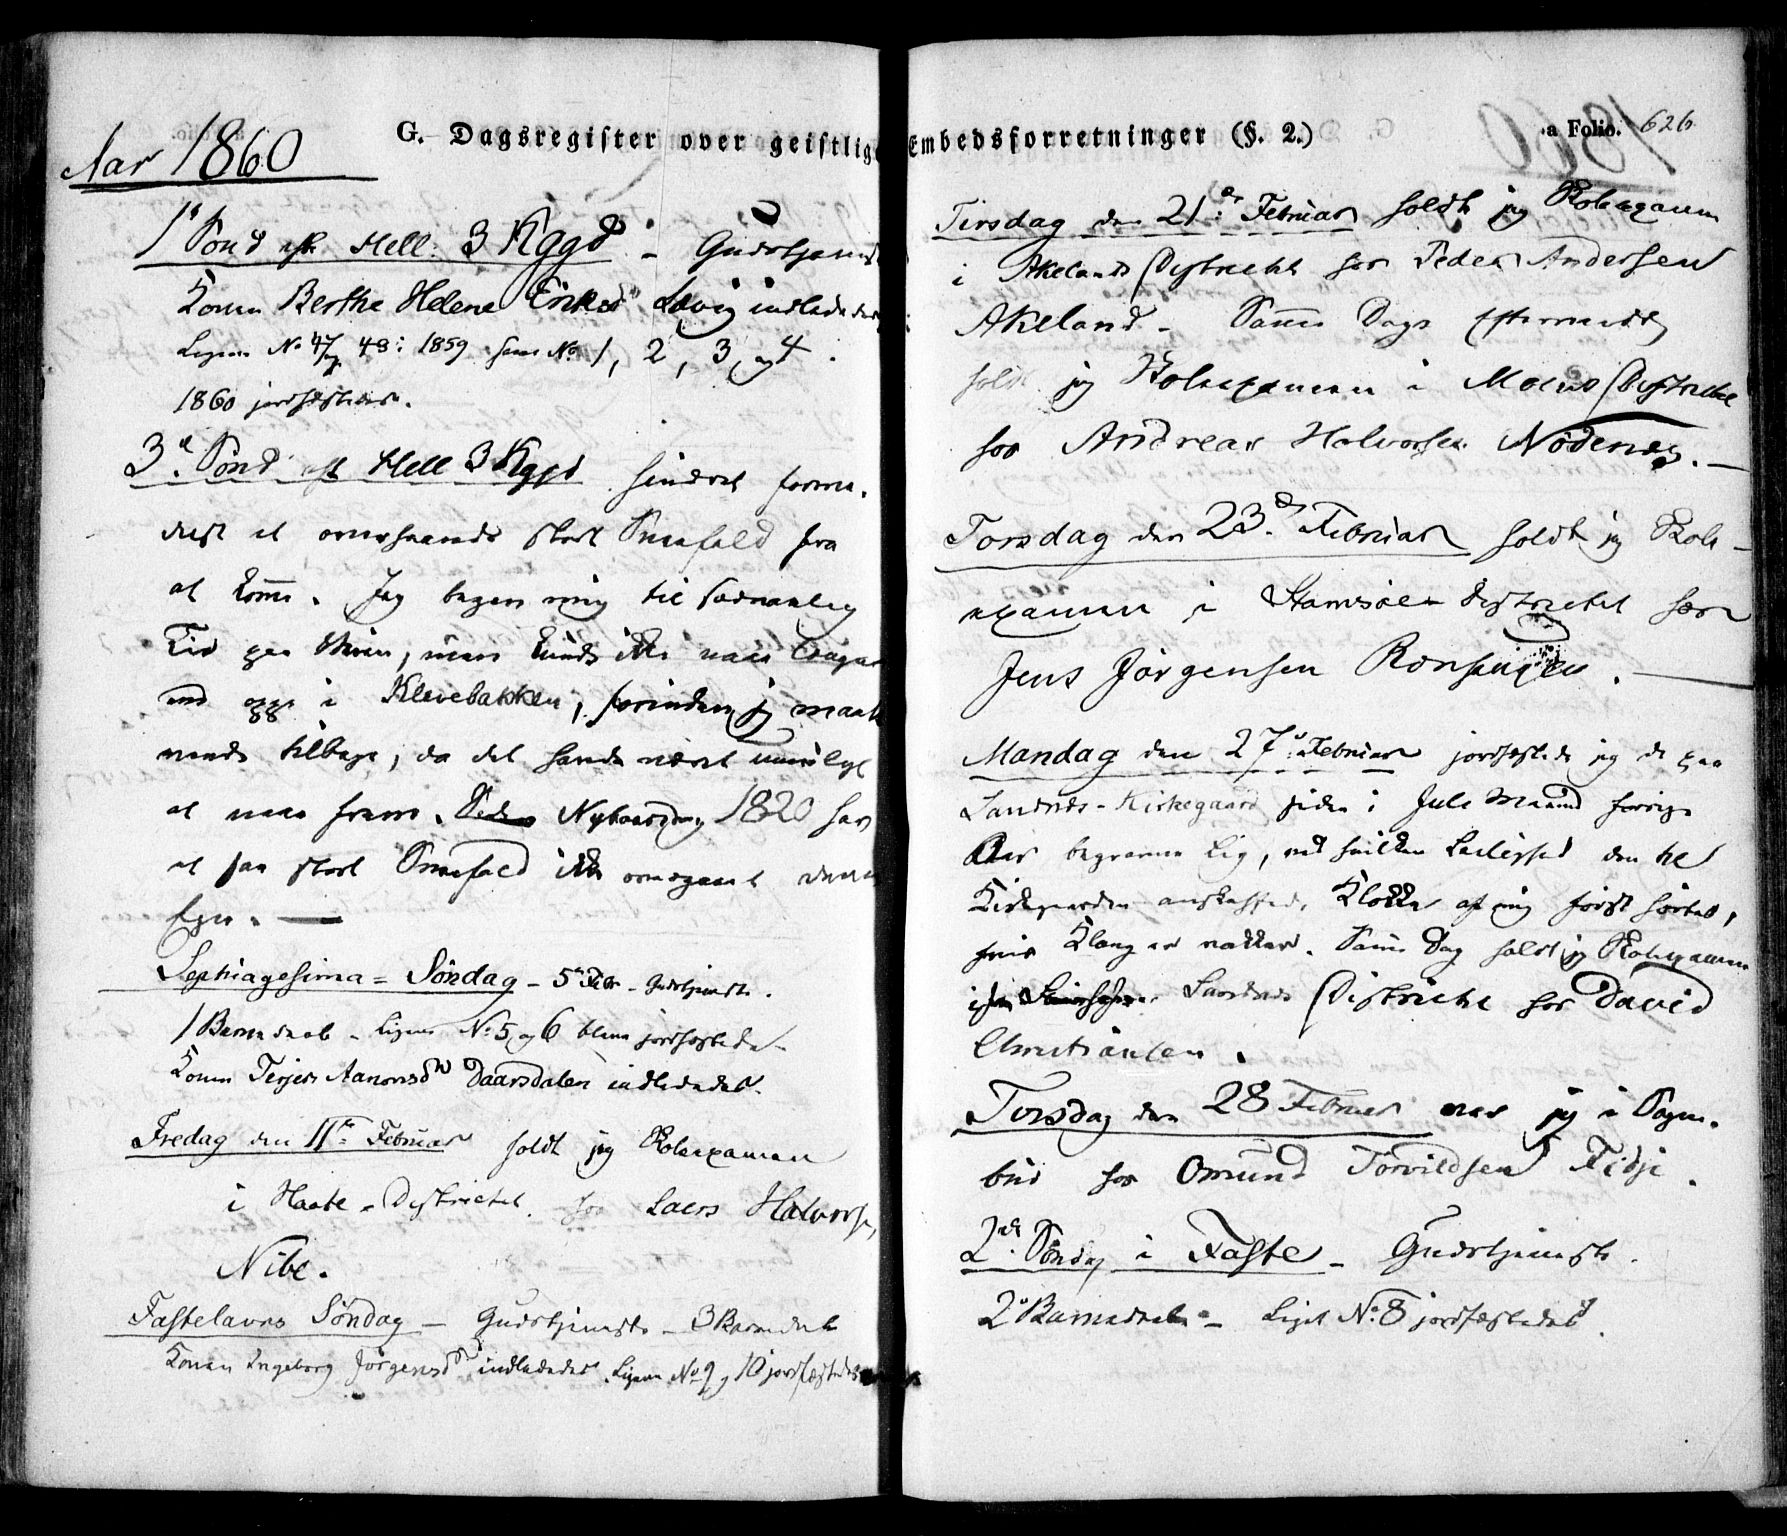 Aar 1860
G. Dagsregister over geistlige Embedsforretninger (§. 2.)
a Folio. 626
1s Sönd eft Hell. 3 Kggs - Gudstjeneste
Konen Berthe Helene Ericksd Løvig indlededes
Ligene No 47 og 48 i 1859 samt No 1, 2, 3, og 4 i
1860 jordfæstedes.
3d Sönd eft Hell 3 Kggs hindret forme-
delst et overhaands stort Sneefald fra
at komme. Jeg begav mig til sædvanlig
Tid paa Veien, men kunde ikke naae længer
end op i Klevebakken, forinden jeg maatte
vende tilbage, da det havde været umuligt
at naae frem. Siden Nytaarsdag 1820 har
et saa stort Sneefald ikke overgaaet denne
Egn. —
Septuagesima = Søndag - 5te Febr - Gudstjeneste.
1 Barn døbt - Ligene No 5 og 6 bleve jordfæstede -
Konen Terjer Aanonsd Daarsdalen indlededes.
Fredag den 11te Februar holdt jeg Skoleexamen
i Haabe - Districtet hos Laers Halvorsen
Nibe.
Fastelavns Søndag - Gudstjeneste - 3 Børn døbte
Konen Ingeborg Jörgensd indlededes. Ligene No 9 og 10 jordfæstedes
Tirsdag den 21de Februar holdt jeg Skoleexamen
i Akelands District hos Peder Andersen
Akeland - Samme Dags Eftermiddag
holdt jeg Skoleexamen i Moens District
hos Andreas Halvorsen Nödenes. —
Torsdag den 23de Februar holdt jeg Skole-
examen i Districtet hos
Jens Jörgensen. —
Mandag den 27de Februar jordfæstede jeg de paa
Landvds - Kirkegaard siden i Jule Maaned forrige
Aar begravne Lig, ved hvilken Leilighed den til
Kirkegaarden anskaffede Klokke af mig først hørtes,
hvis Klang er vakker. Samme Dag holdt jeg Skoleexamen
i Landvds District hos David
Christiansen.
Torsdag den 28 Februar var jeg i Sogne-
bud hos Omund Torvildsen Fidje.
2den Søndag i Faste - Gudstjeneste.
2 Børn døbte - Liget No 8 jordfæstedes.